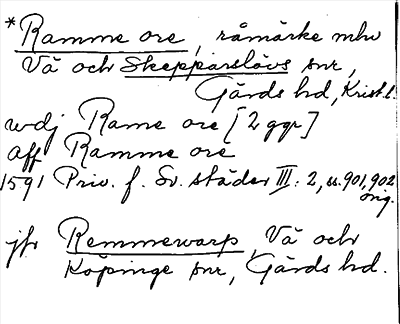 *Ramme ore, råmärke mlw
Vä och Skepparslövs snr,
Gärds hd, Krist.l.
wdj Rame ore [2 ggr]
aff Ramme ore
1591 Priv. f. Sv. städer III: 2, s. 901, 902
orig.
jfr Remmewarp, Vä och
Köpinge snr, Gärds hd.